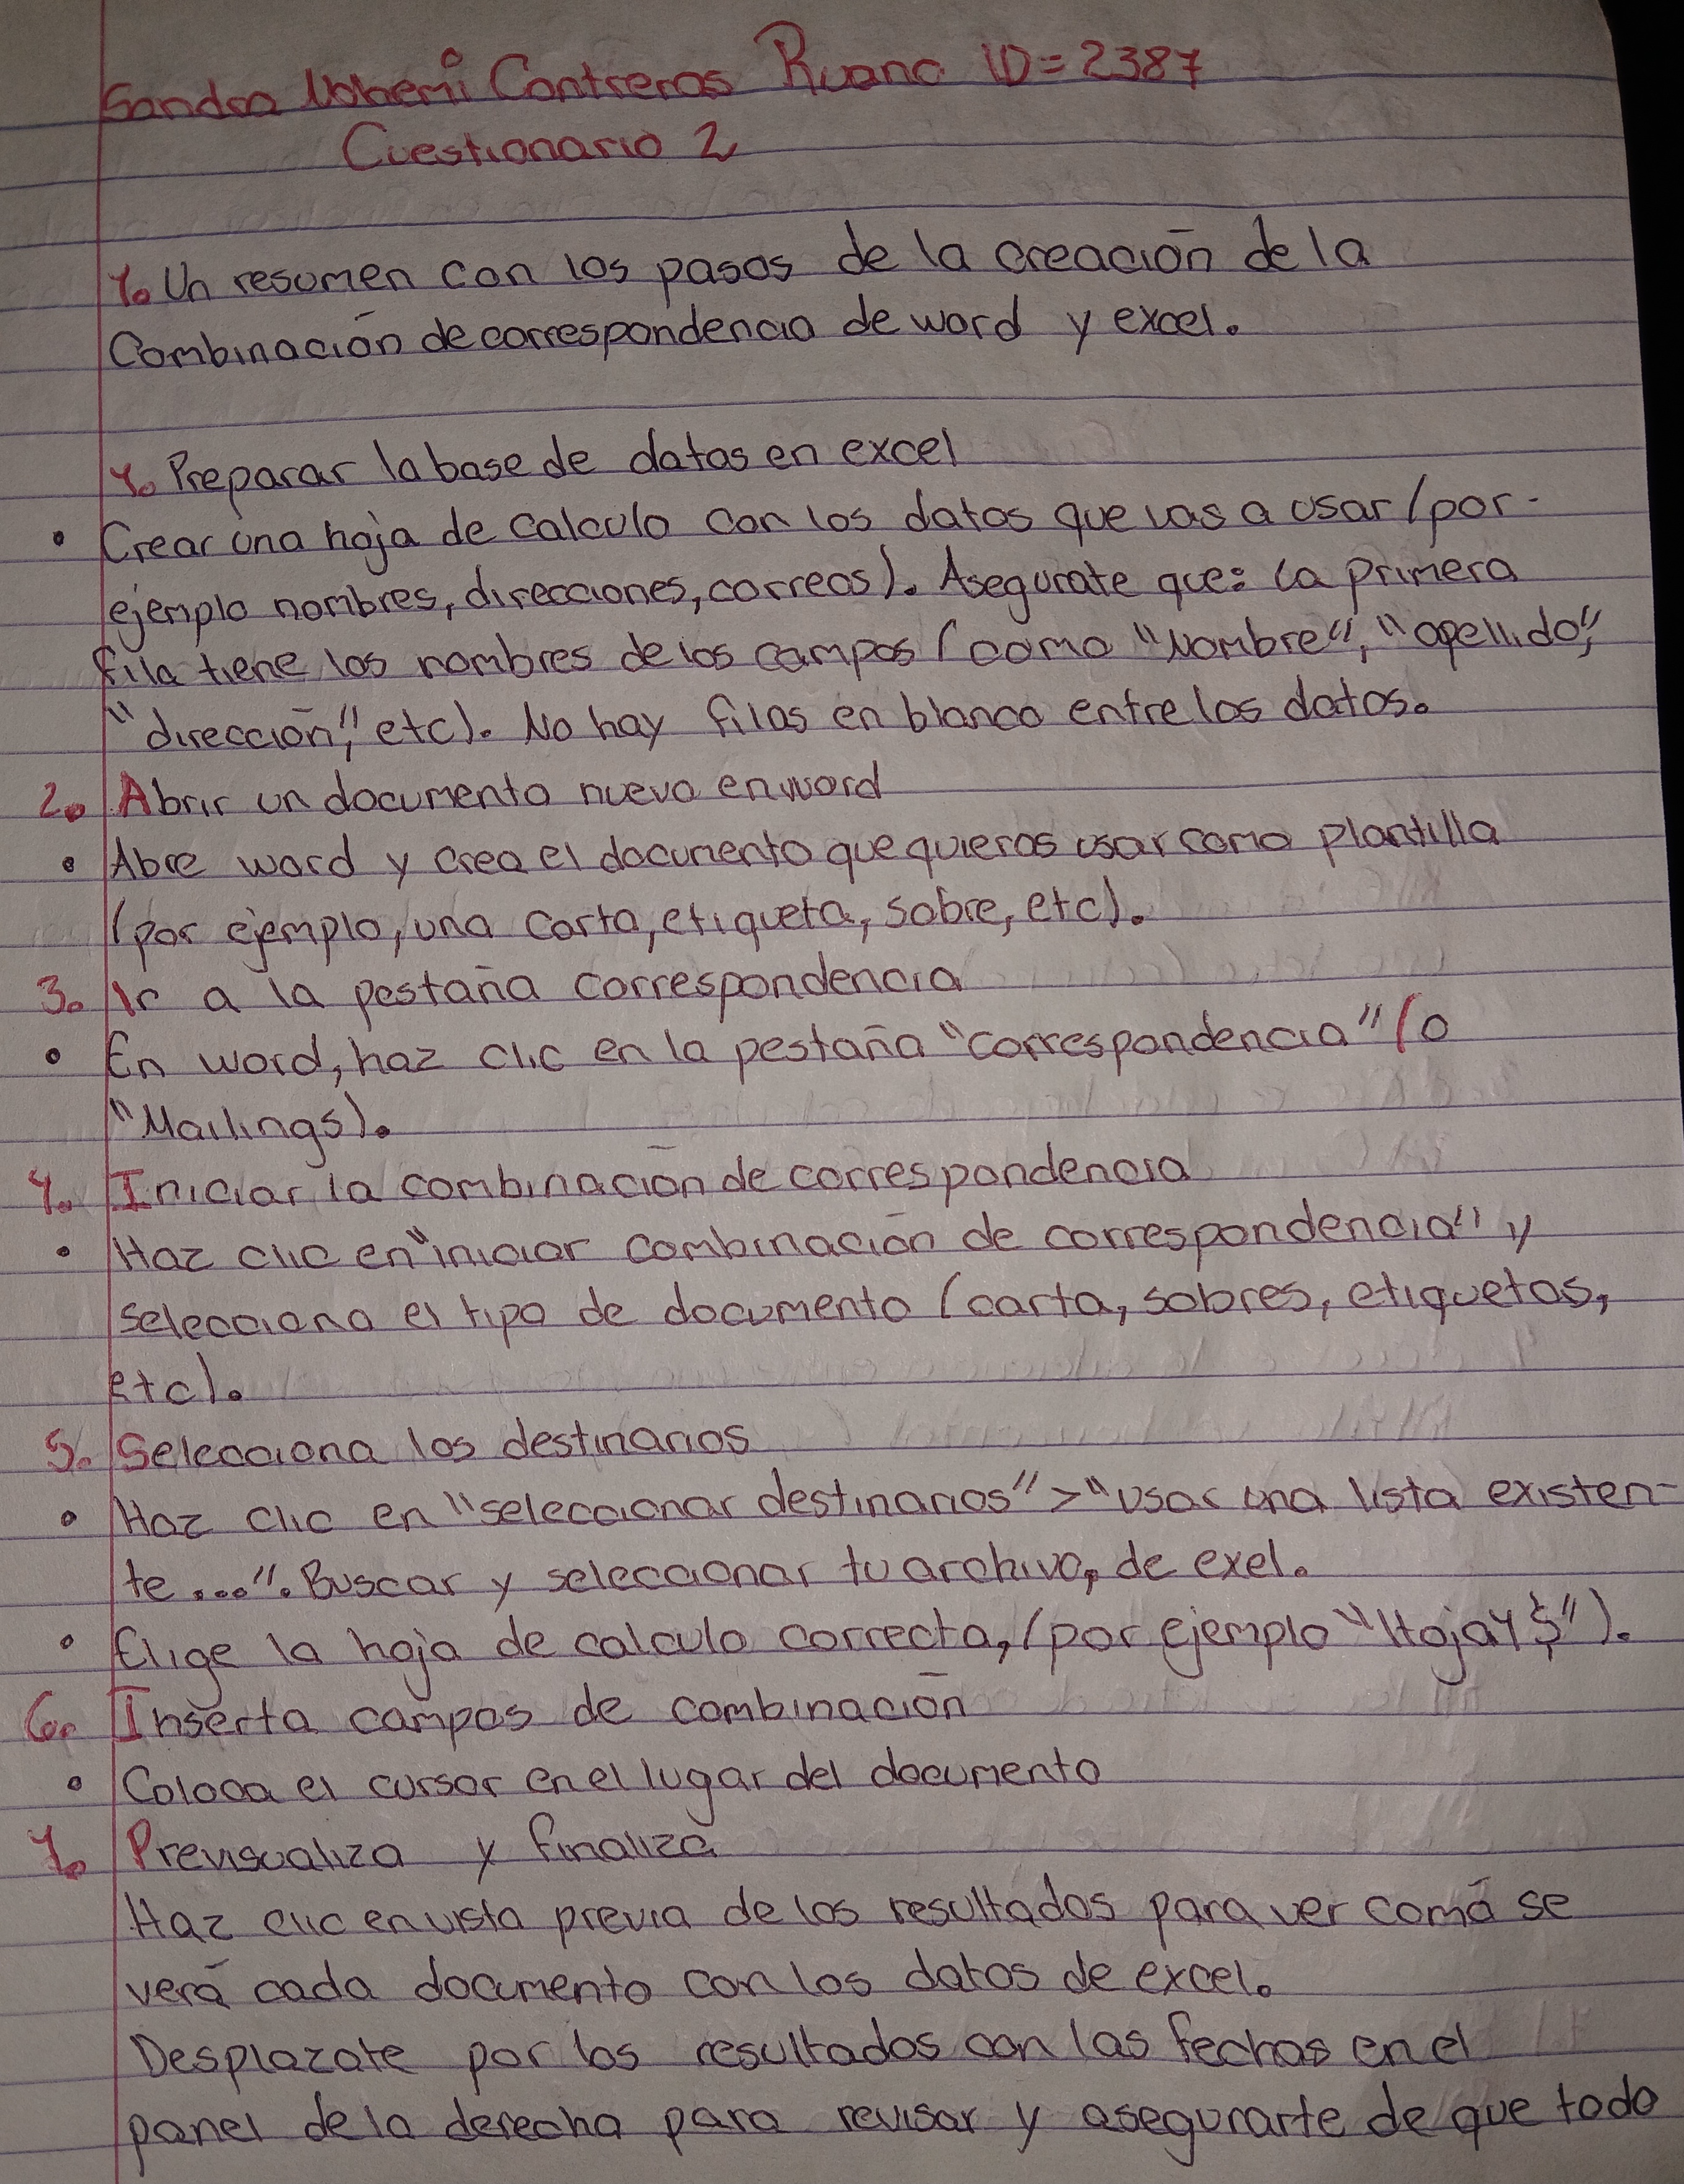 Sandra Nohemi Contreras Ruano ID=2387
Cuestionario 2
1. Un resumen con los pasos de la creación de la
Combinación de correspondencia de word y excel.
1. Preparar la base de datos en excel
• Crear una hoja de calculo con los datos que vas a usar (por-
ejemplo nombres, direcciones, correos). Asegurate que: la primera
fila tiene los nombres de los campos (como "Nombre", "apellido",
"dirección", etc). No hay filas en blanco entre los datos.
2. Abrir un documento nuevo en word
• Abre word y crea el documento que quieras usar como plantilla
(por ejemplo, una carta, etiqueta, sobre, etc).
3. Ir a la pestaña correspondencia
• En word, haz clic en la pestaña "correspondencia" (o
"Mailings).
4. Iniciar la combinación de correspondencia
• Haz clic en "iniciar combinación de correspondencia" y
selecciona el tipo de documento (carta, sobres, etiquetas,
etc).
5. Selecciona los destinarios
• Haz clic en "seleccionar destinarios" > "usar una lista existen-
te...". Buscar y seleccionar tu archivo, de exel.
• Elige la hoja de calculo correcta, (por ejemplo "Hoja1$").
6. Inserta campos de combinación
• Coloca el cursor en el lugar del documento
7. Previsualiza y finaliza
Haz clic en vista previa de los resultados para ver comó se
verá cada documento con los datos de excel.
Desplazate por los resultados con las fechas en el
panel de la derecha para revisar y asegurarte de que todo